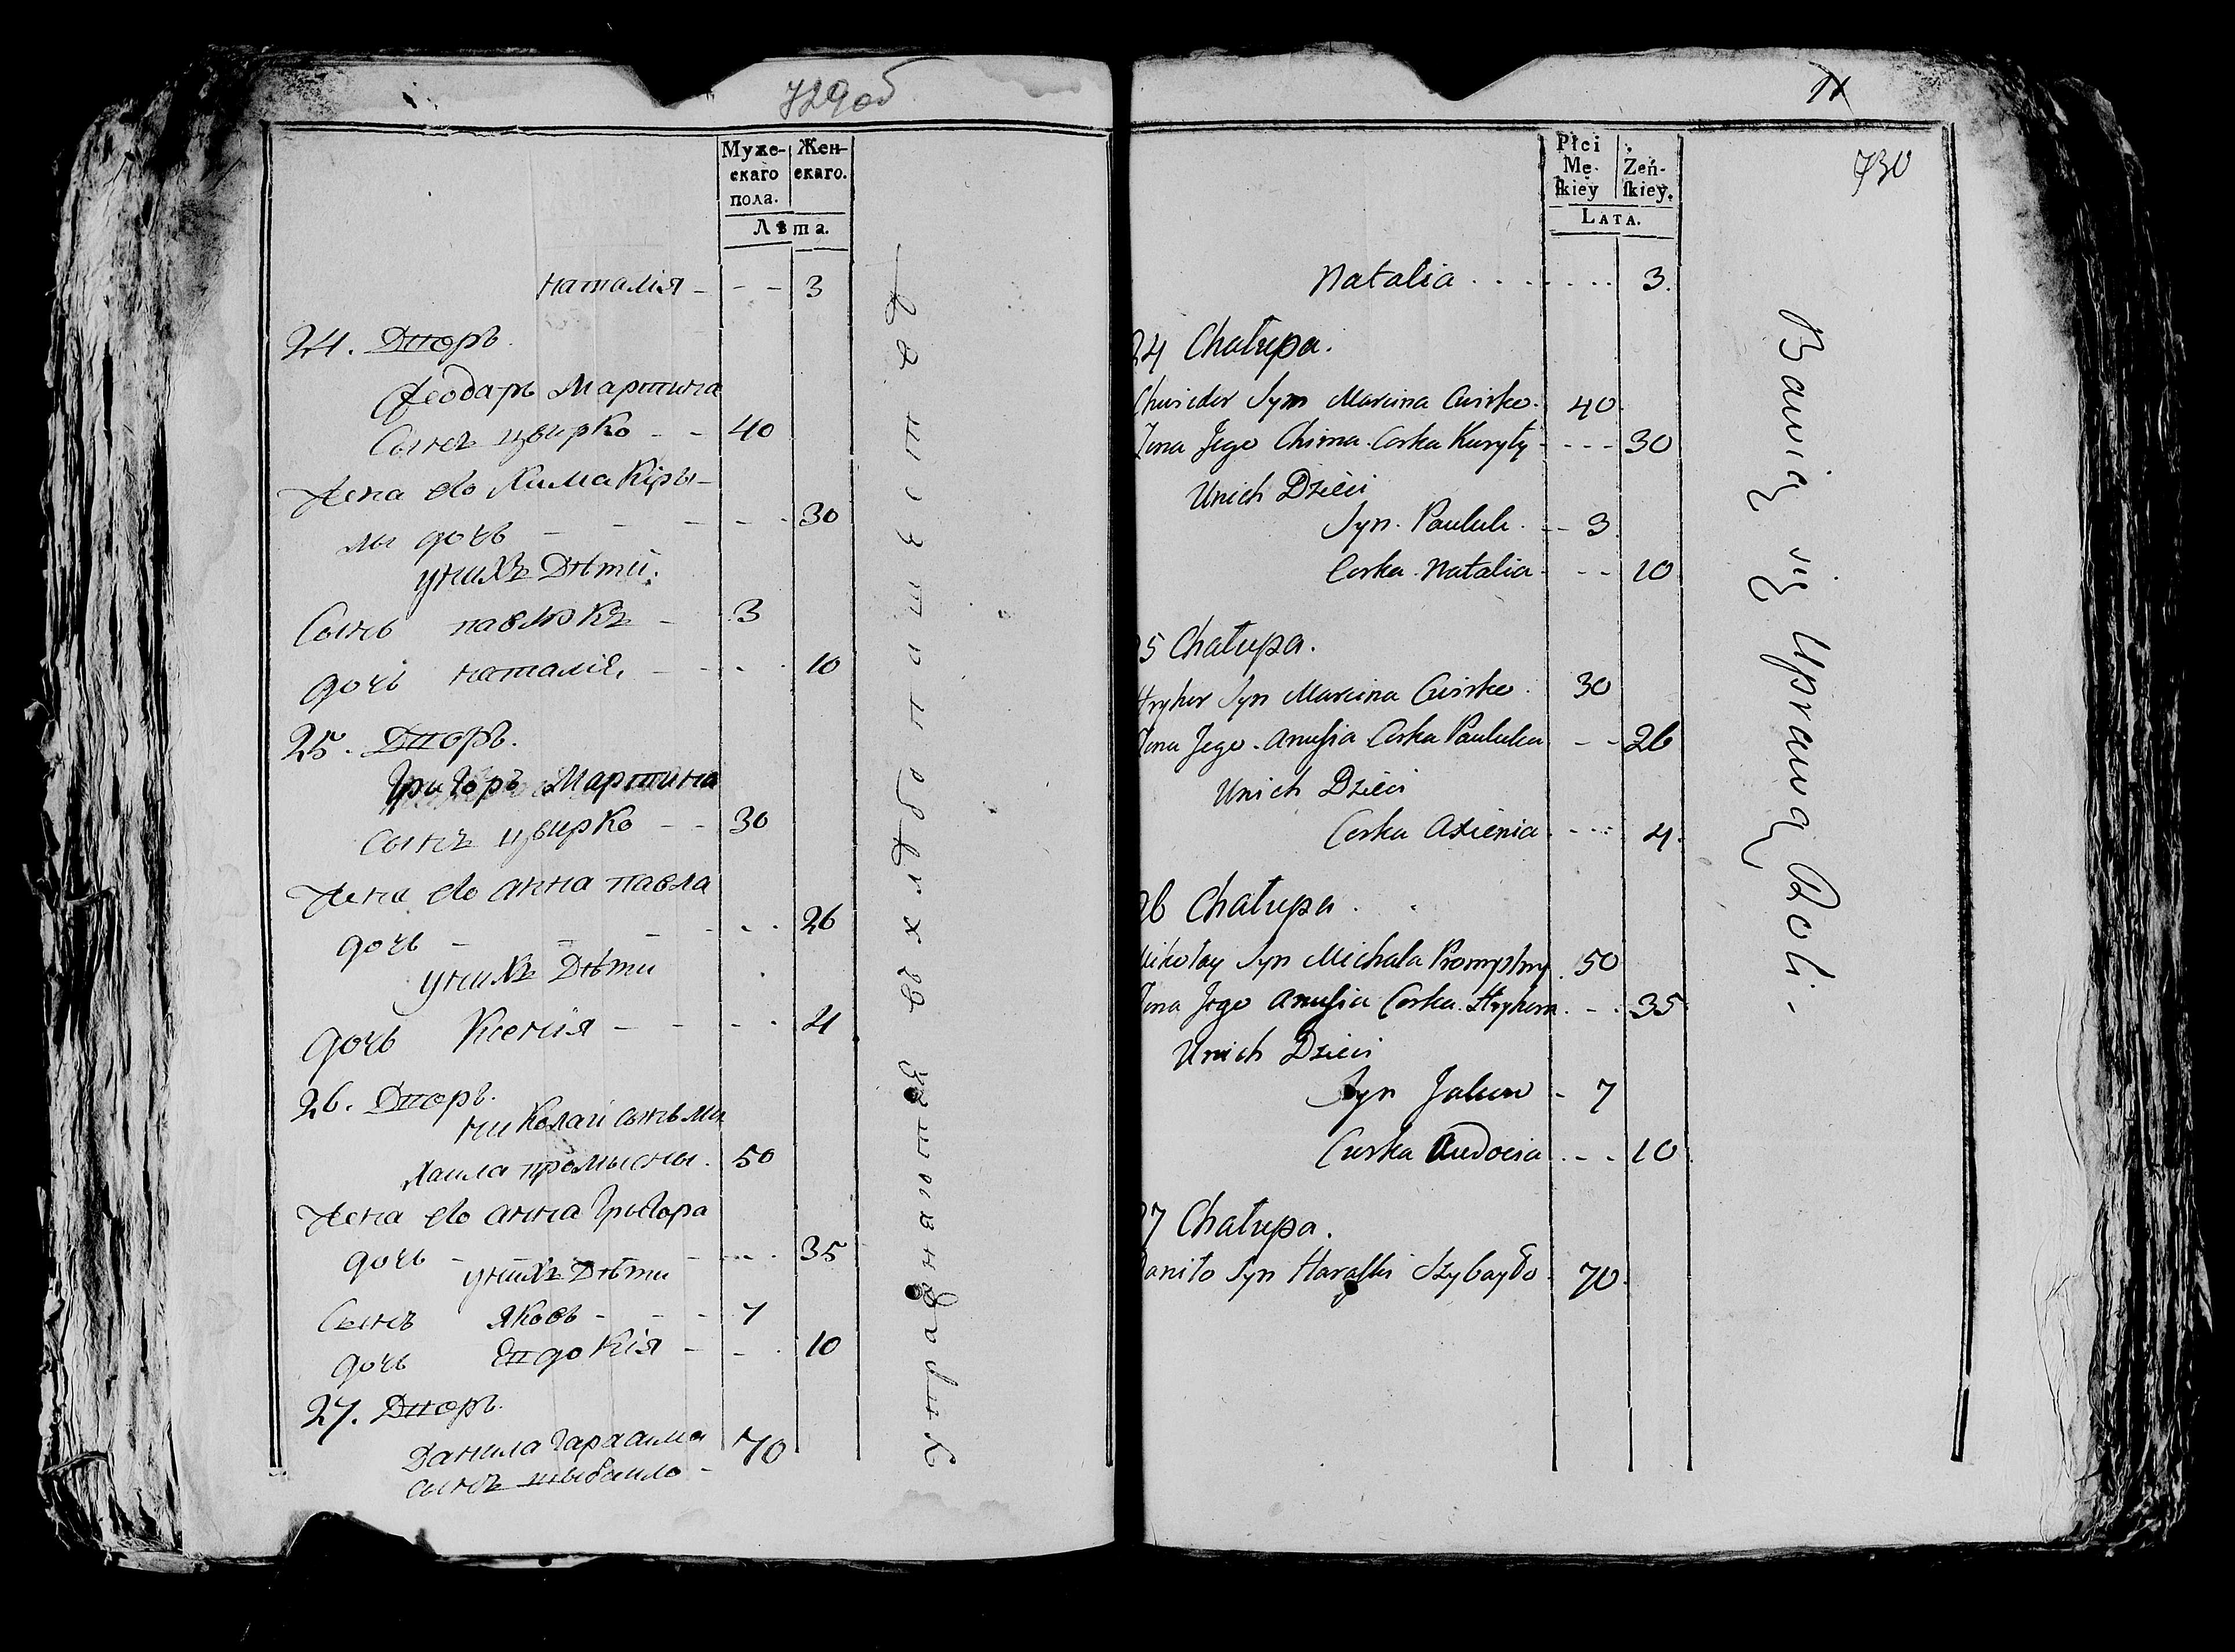 729 об
Муже-
скаго
пола.
Жен-
скаго.
Лѣта.
наталія - - - 3
24. Дворъ.
Феодаръ Мартина
Сынъ цвирко - - 40
Жена его Химa Киры-
лы дочь - - - - - 30
унихъ Дѣти.
Сынъ павлюкъ - 3
дочь наталія - - - 10
25. Дворъ.
Григоръ Мартина
Сынъ цвирко - - 30
Жена его анна павла
дочь - - - - - 26
унихъ Дѣти
дочь Ксенія - - - - 4
26. Дворъ.
николай сынъ ми
хаила промысны. 50
Жена его анна Григора
дочь - - - - 35
унихъ Дѣти
Сынъ яковъ - - - 7
дочь Евдокія - - - 10
27. Дворъ.
Данила Гараима
сынъ шыбаило - 70
Упражняются въ хлебопашестве
11
730
Płci
Mę-
skiey
Żeń-
skiey.
LATA.
Natalia . . . . . . . 3.
24 Chałupa.
Chwiedor Syn Marcina Cwirko. 40.
Zona Jego Chima Corka Kuryły - - - - 30
Unich Dzieci
Syn. Pauluk. - - 3
Corka. Natalia - - - 10
25 Chałupa.
Hryhor Syn Marcina Cwirko. 30
Zona Jego. Anusia Corka Pauluka - - 26
Unich Dzieci
Corka Axienia. - - - 4.
26 Chałupa.
Mikołay Syn Michała Promyslny. 50
Zona Jego Anusia Corka. Hryhora. - . 35
Unich Dzieci
Syn Jakow - 7
Curka Audocia. - - 10.
27 Chałupa.
Daniło Syn Haraski Szybayło. 70.
Bawią się Uprawą Roli.-